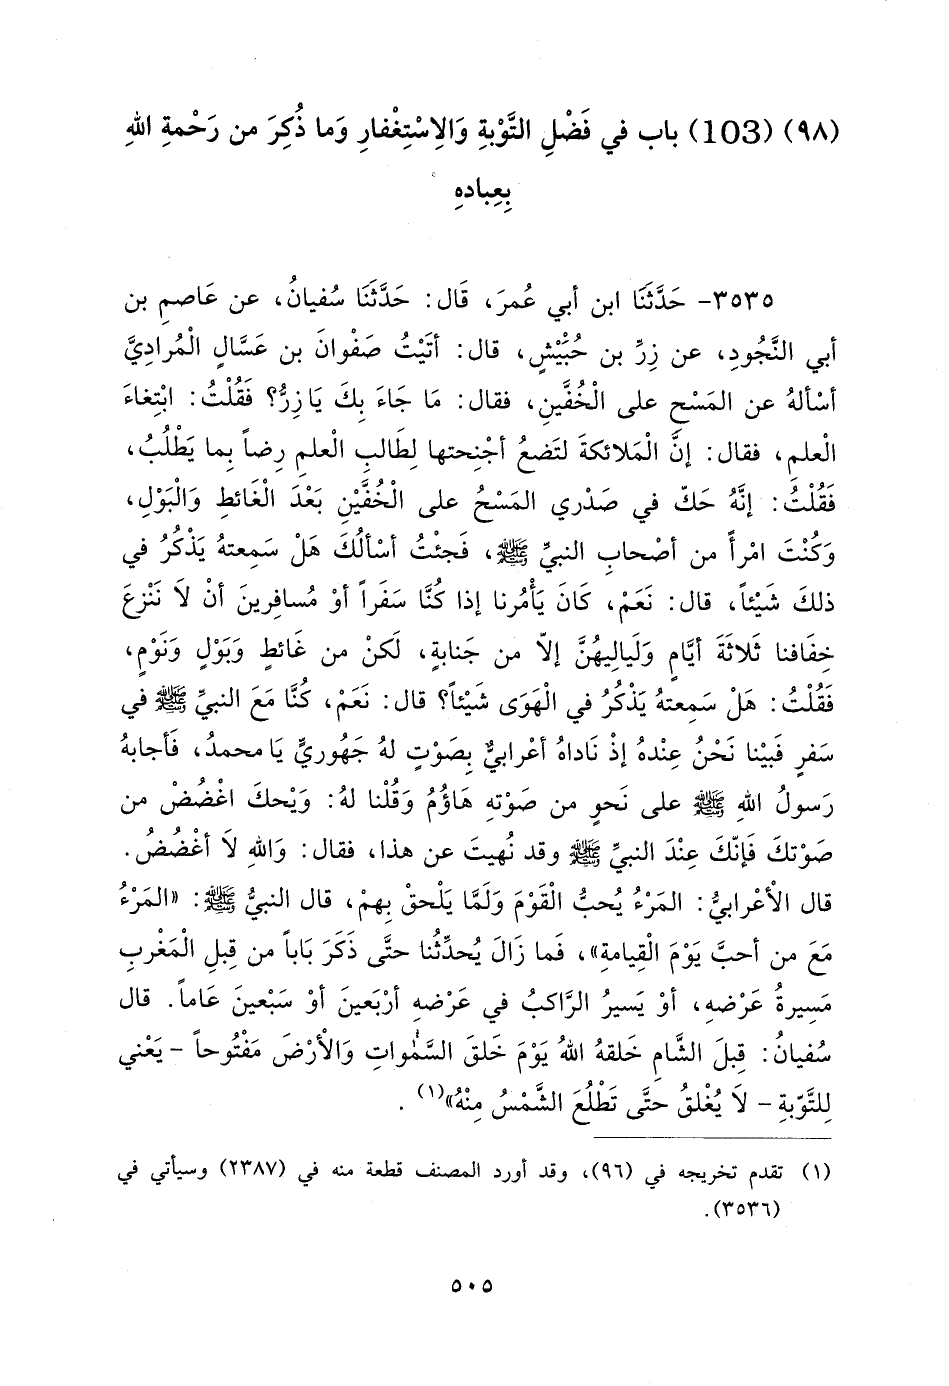 (٩٨) (103) باب في فَضْلِ التَّوْبةِ وَالِاسْتِغْفارِ وَما ذُكِرَ من رَحْمةِ اللهِ
بِعِباده
٣٥٣٥- حَدَّثَنَا ابن أبي عُمرَ، قَال: حَدَّثَنَا سُفيانُ، عن عَاصمِ بن
أبي النَّجُودِ، عن زِرِّ بن حُبَيْشٍ، قال: أتَيْتُ صَفْوانَ بن عَسَّالٍ الْمُرادِيَّ
أسْألهُ عن المَسْحِ على الْخُفَّينِ، فقال: مَا جَاءَ بِكَ يَا زِرُّ؟ فَقُلْتُ: ابْتِغاءَ
الْعلمِ، فقال: إنَّ الْمَلائكةَ لتَضعُ أجْنِحتها لِطَالبِ الْعلمِ رِضاً بِما يَطْلُبُ،
فَقُلْتُ: إنَّهُ حَكّ في صَدْري المَسْحُ على الْخُفَّيْنِ بَعْدَ الْغَائطِ وَالْبَوْلِ،
وَكُنْتَ امْرأً من أصْحابِ النبيِّ ﷺ، فَجئْتُ أسْألُكَ هَلْ سَمِعتهُ يَذْكُرُ في
ذلكَ شَيْئاً، قال: نَعَمْ، كَانَ يَأْمُرنا إذا كُنَّا سَفَراً أوْ مُسافِرينَ أنْ لاَ نَنْزعَ
خِفَافنا ثَلاثةَ أيَّامٍ وَلَيالِيهُنَّ إلاّ من جَنابةٍ، لَكنْ من غَائطٍ وَبَوْلٍ وَنَوْمٍ،
فَقُلْتُ: هَلْ سَمِعتهُ يَذْكُرُ في الْهَوَى شَيْئاً؟ قال: نَعَمْ، كُنَّا مَعَ النبيِّ ﷺ في
سَفرٍ فَبَيْنا نَحْنُ عِنْدهُ إذْ نَاداهُ أعْرابيٌّ بِصَوْتٍ لهُ جَهُوريٍّ يَا محمدُ، فَأجابهُ
رَسولُ اللهِ ﷺ على نَحوٍ من صَوْتهِ هَاؤُمُ وَقُلْنا لهُ: وَيْحكَ اغْضُضْ من
صَوْتكَ فَإنّكَ عِنْدَ النبيِّ ﷺ وقد نُهيتَ عن هذا، فقال: وَاللهِ لاَ أغْضُضُ.
قال الأعْرابيُّ: المَرْءُ يُحبُّ الْقَوْمَ وَلَمَّا يَلْحقْ بِهمْ، قال النبيُّ ﷺ: «المَرْءُ
مَعَ من أحبَّ يَوْمَ الْقِيامةِ»، فَما زَالَ يُحدِّثُنا حتَّى ذَكَرَ بَاباً من قِبلِ الْمَغْربِ
مَسِيرةُ عَرْضهِ، أوْ يَسيرُ الرَّاكبُ في عَرْضهِ أرْبَعينَ أوْ سَبْعينَ عَاماً. قال
سُفيانُ: قِبلَ الشَّامِ خَلقهُ اللهُ يَوْمَ خَلقَ السَّمٰواتِ وَالْأرْضَ مَفْتُوحاً - يَعْني
لِلتَّوْبةِ - لاَ يُغْلقُ حتَّى تَطْلُعَ الشَّمْسُ مِنْهُ»(١).
(١) تقدم تخريجه في (٩٦)، وقد أورد المصنف قطعة منه في (٢٣٨٧) وسيأتي في
(٣٥٣٦).
٥٠٥